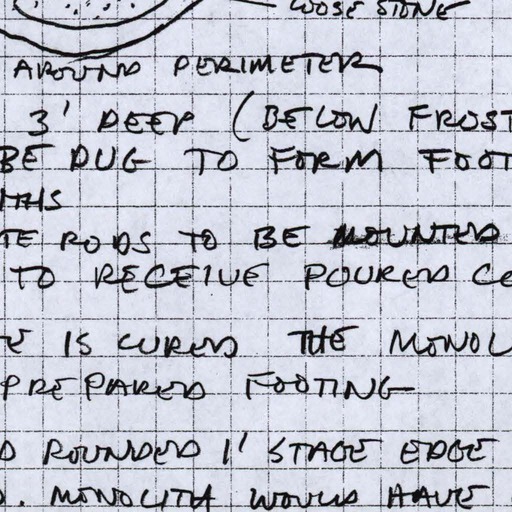 LOOSE STONE
AROUND PERIMETER
3' DEEP (BELOW FROST
BE DUG TO FORM FOOT
ITHS
TE RODS TO BE MOUNTED
TO RECEIVE POURED CE
E IS CURED THE MONOL
PREPARED FOOTING
D ROUNDED 1' STAGE EDGE
D. MONOLITH WOULD HAVE